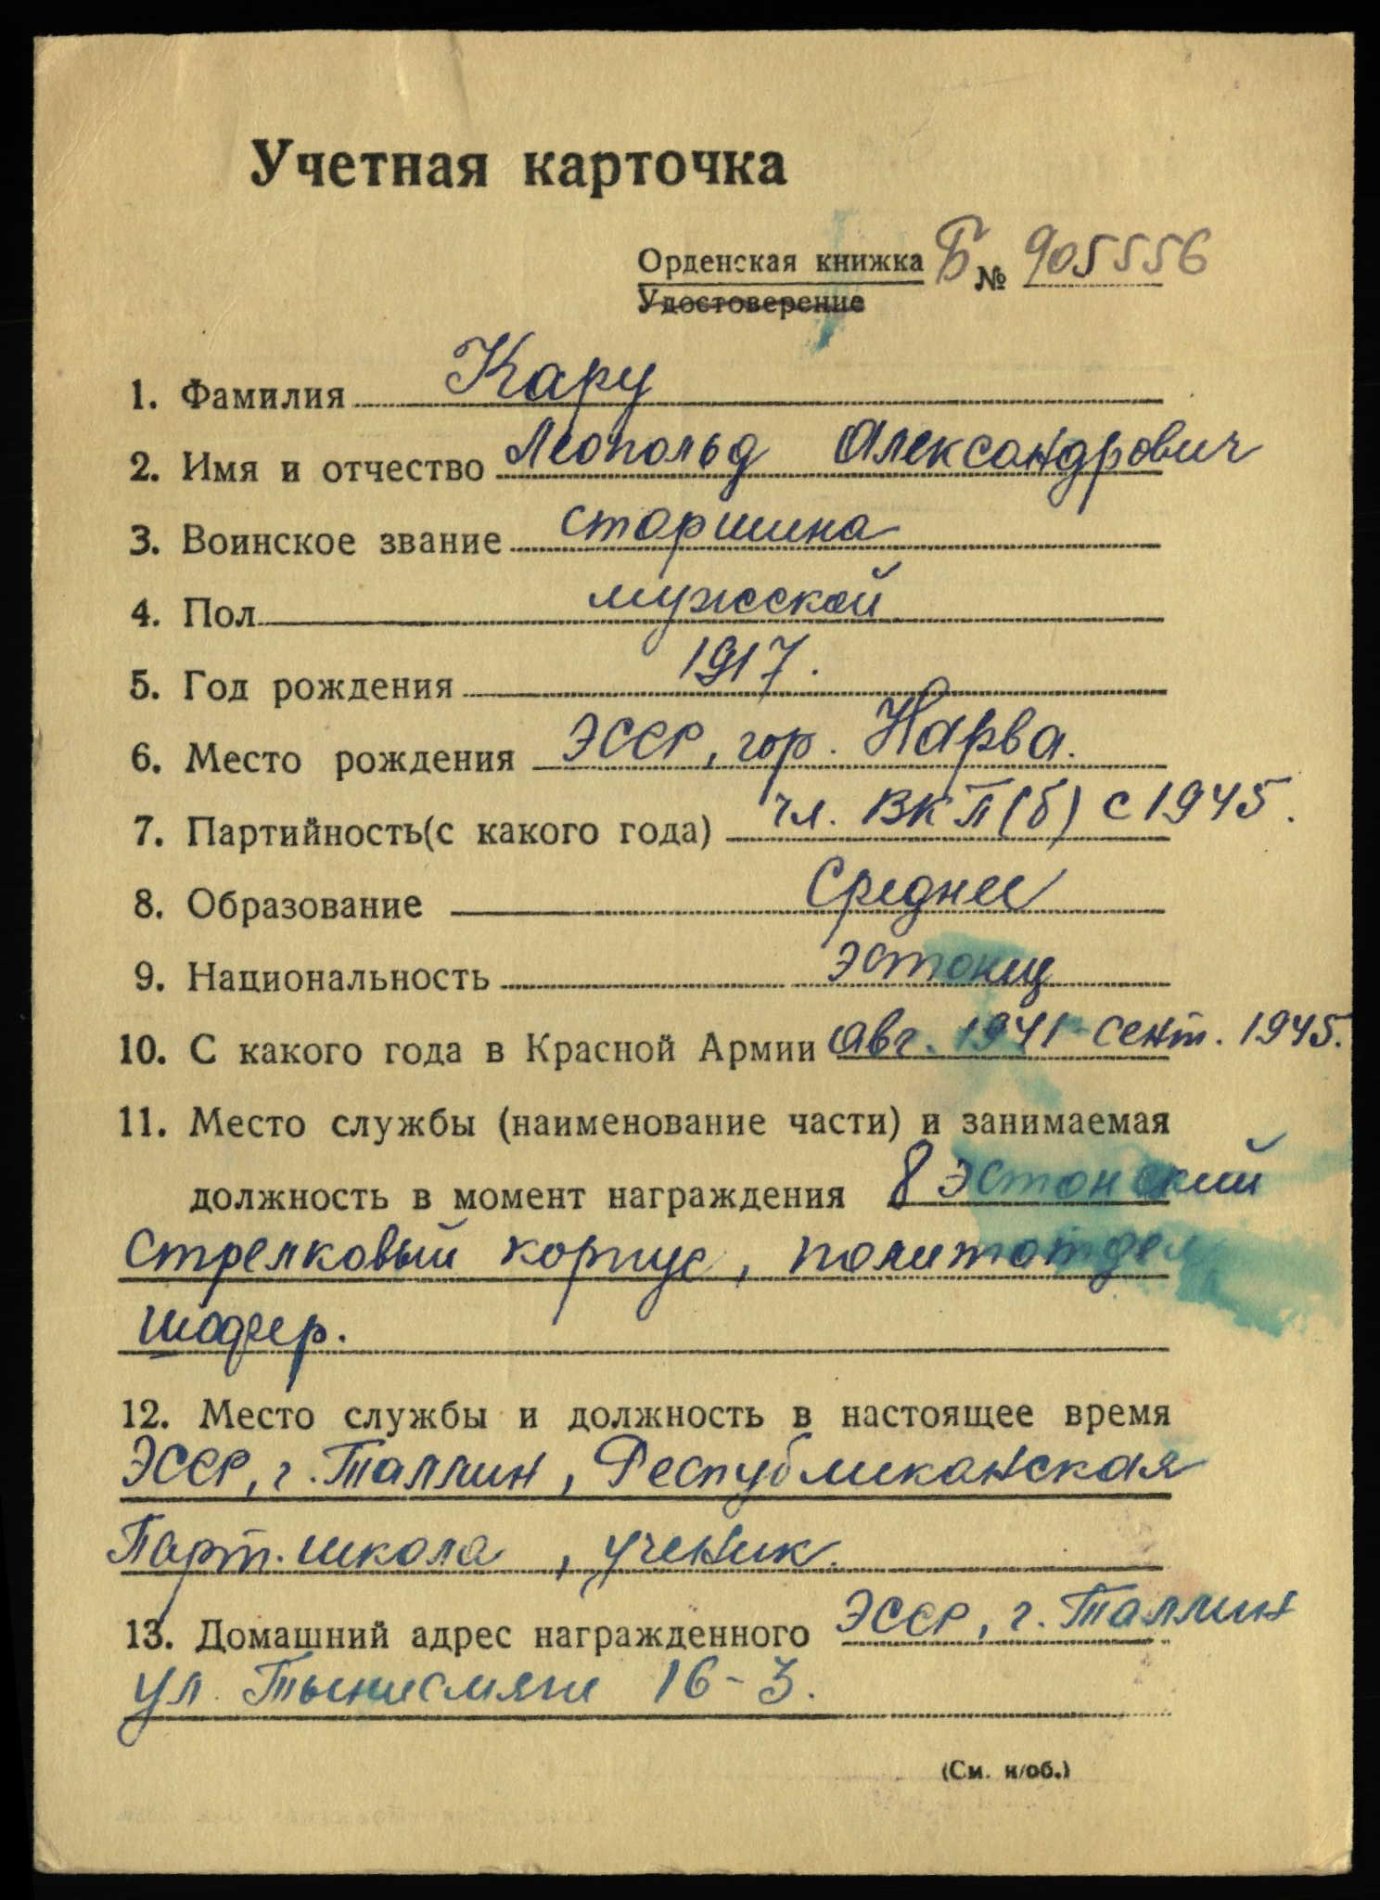 Учетная карточка
Орденская книжка Б № 905556
Удостоверение
1. Фамилия Кару
2. Имя и отчество Леопольд Александрович
3. Воинское звание старшина
4. Пол мужской
5. Год рождения 1917.
6. Место рождения ЭССР, гор. Нарва.
7. Партийность(с какого года) чл. ВКП(б) с 1945.
8. Образование Среднее
9. Национальность эстонец
10. С какого года в Красной Армии Авг. 1941 - сент. 1945.
11. Место службы (наименование части) и занимаемая
должность в момент награждения 8 Эстонский
стрелковый корпус, политотдел,
шофер.
12. Место службы и должность в настоящее время
ЭССР, г. Таллин, Республиканская
Парт. школа, ученик.
13. Домашний адрес награжденного ЭССР, г. Таллин
ул. Тынисмяги 16-3.
(См. н/об.)